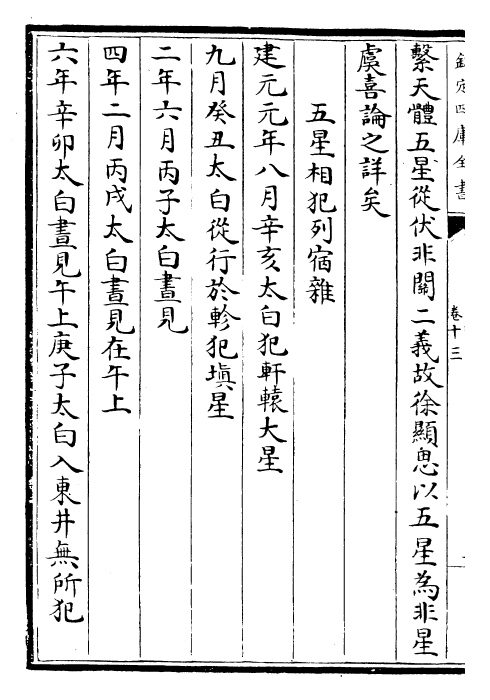 欽定四庫全書
卷十三
繫天體五星從伏非關二義故徐顯思以五星為非星
虞喜論之詳矣
五星相犯列宿雜
建元元年八月辛亥太白犯軒轅大星
九月癸丑太白從行於軫犯塡星
二年六月丙子太白晝見
四年二月丙戌太白晝見在午上
六年辛卯太白晝見午上庚子太白入東井無所犯